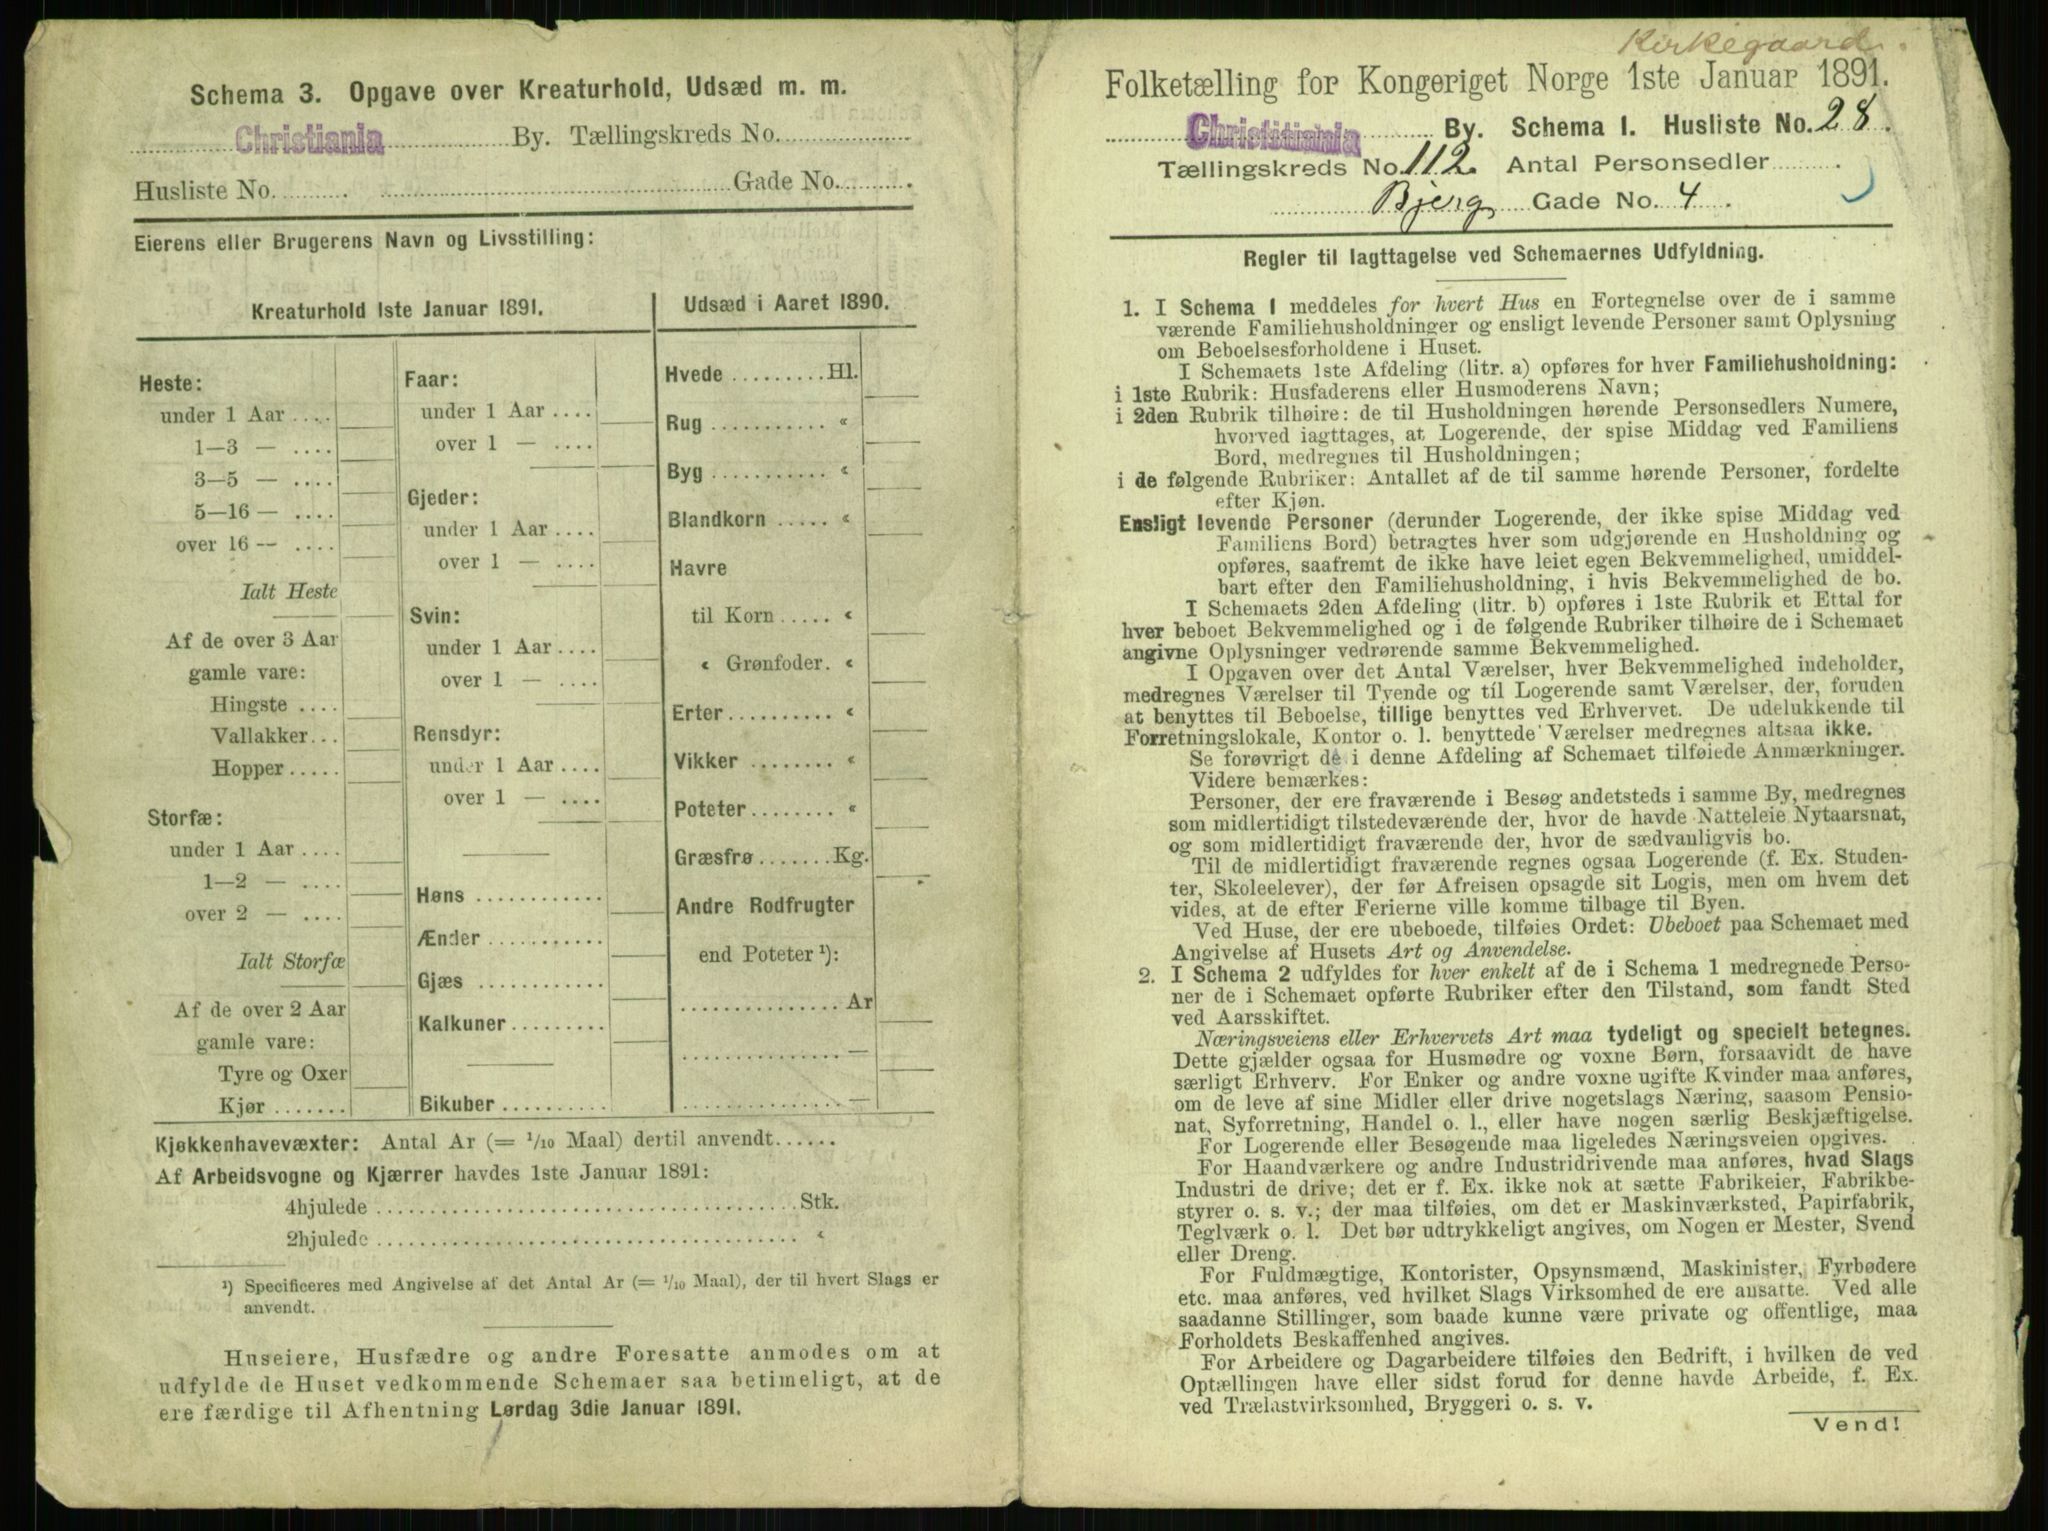 Schema 3. Opgave over Kreaturhold, Udsæd m. m.
Christiania By. Tællingskreds No.
Husliste No. Gade No.
Eierens eller Brugerens Navn og Livsstilling:
Kreaturhold 1ste Januar 1891.
Heste:
under 1 Aar ....
1—3 — ....
3—5 — ....
5—16 — ....
over 16 — ....
Ialt Heste
Af de over 3 Aar
gamle vare:
Hingste ....
Vallakker...
Hopper .....
Storfæ:
under 1 Aar ....
1—2 — ....
over 2 — ....
Ialt Storfæ
Af de over 2 Aar
gamle vare:
Tyre og Oxer
Kjør .......
Faar:
under 1 Aar ....
over 1 — ....
Gjeder:
under 1 Aar ....
over 1 — ....
Svin:
under 1 Aar ....
over 1 — ....
Rensdyr:
under 1 Aar ....
over 1 — ....
Høns ............
Ænder ...........
Gjæs ............
Kalkuner .........
Bikuber ..........
Udsæd i Aaret 1890.
Hvede .........Hl.
Rug ........... «
Byg ........... «
Blandkorn ..... «
Havre
til Korn ..... «
« Grønfoder. «
Erter .......... «
Vikker ........ «
Poteter ........ «
Græsfrø .......Kg.
Andre Rodfrugter
end Poteter ¹):
............... Ar
............... —
............... —
Kjøkkenhavevæxter: Antal Ar (= 1/10 Maal) dertil anvendt......
Af Arbeidsvogne og Kjærrer havdes 1ste Januar 1891:
4hjulede ........................................ Stk.
2hjulede ........................................ «
¹) Specificeres med Angivelse af det Antal Ar (= 1/10 Maal), der til hvert Slags er
anvendt.
Huseiere, Husfædre og andre Foresatte anmodes om at
udfylde de Huset vedkommende Schemaer saa betimeligt, at de
ere færdige til Afhentning Lørdag 3die Januar 1891.
Kirkegaard.
Folketælling for Kongeriget Norge 1ste Januar 1891.
Christiania By. Schema I. Husliste No. 28.
Tællingskreds No. 112. Antal Personsedler .
Bjerg Gade No. 4 .
Regler til Iagttagelse ved Schemaernes Udfyldning.
1. I Schema I meddeles for hvert Hus en Fortegnelse over de i samme
værende Familiehusholdninger og ensligt levende Personer samt Oplysning
om Beboelsesforholdene i Huset.
I Schemaets 1ste Afdeling (litr. a) opføres for hver Familiehusholdning:
i 1ste Rubrik: Husfaderens eller Husmoderens Navn;
i 2den Rubrik tilhøire: de til Husholdningen hørende Personsedlers Numere,
hvorved iagttages, at Logerende, der spise Middag ved Familiens
Bord, medregnes til Husholdningen;
i de følgende Rubriker: Antallet af de til samme hørende Personer, fordelte
efter Kjøn.
Ensligt levende Personer (derunder Logerende, der ikke spise Middag ved
Familiens Bord) betragtes hver som udgjørende en Husholdning og
opføres, saafremt de ikke have leiet egen Bekvemmelighed, umiddel-
bart efter den Familiehusholdning, i hvis Bekvemmelighed de bo.
I Schemaets 2den Afdeling (litr. b) opføres i 1ste Rubrik et Ettal for
hver beboet Bekvemmelighed og i de følgende Rubriker tilhøire de i Schemaet
angivne Oplysninger vedrørende samme Bekvemmelighed.
I Opgaven over det Antal Værelser, hver Bekvemmelighed indeholder,
medregnes Værelser til Tyende og til Logerende samt Værelser, der, foruden
at benyttes til Beboelse, tillige benyttes ved Erhvervet. De udelukkende til
Forretningslokale, Kontor o. l. benyttede Værelser medregnes altsaa ikke.
Se forøvrigt de i denne Afdeling af Schemaet tilføiede Anmærkninger.
Videre bemærkes:
Personer, der ere fraværende i Besøg andetsteds i samme By, medregnes
som midlertidigt tilstedeværende der, hvor de havde Natteleie Nytaarsnat,
og som midlertidigt fraværende der, hvor de sædvanligvis bo.
Til de midlertidigt fraværende regnes ogsaa Logerende (f. Ex. Studen-
ter, Skoleelever), der før Afreisen opsagde sit Logis, men om hvem det
vides, at de efter Ferierne ville komme tilbage til Byen.
Ved Huse, der ere ubeboede, tilføies Ordet: Ubeboet paa Schemaet med
Angivelse af Husets Art og Anvendelse.
2. I Schema 2 udfyldes for hver enkelt af de i Schema 1 medregnede Perso-
ner de i Schemaet opførte Rubriker efter den Tilstand, som fandt Sted
ved Aarsskiftet.
Næringsveiens eller Erhvervets Art maa tydeligt og specielt betegnes.
Dette gjælder ogsaa for Husmødre og voxne Børn, forsaavidt de have
særligt Erhverv. For Enker og andre voxne ugifte Kvinder maa anføres,
om de leve af sine Midler eller drive nogetslags Næring, saasom Pensio-
nat, Syforretning, Handel o. l., eller have nogen særlig Beskjæftigelse.
For Logerende eller Besøgende maa ligeledes Næringsveien opgives.
For Haandværkere og andre Industridrivende maa anføres, hvad Slags
Industri de drive; det er f. Ex. ikke nok at sætte Fabrikeier, Fabrikbe-
styrer o. s. v.; der maa tilføies, om det er Maskinværksted, Papirfabrik,
Teglværk o. l. Det bør udtrykkeligt angives, om Nogen er Mester, Svend
eller Dreng.
For Fuldmægtige, Kontorister, Opsynsmænd, Maskinister, Fyrbødere
etc. maa anføres, ved hvilket Slags Virksomhed de ere ansatte. Ved alle
saadanne Stillinger, som baade kunne være private og offentlige, maa
Forholdets Beskaffenhed angives.
For Arbeidere og Dagarbeidere tilføies den Bedrift, i hvilken de ved
Optællingen have eller sidst forud for denne havde Arbeide, f. Ex.
ved Trælastvirksomhed, Bryggeri o. s. v.
Vend!